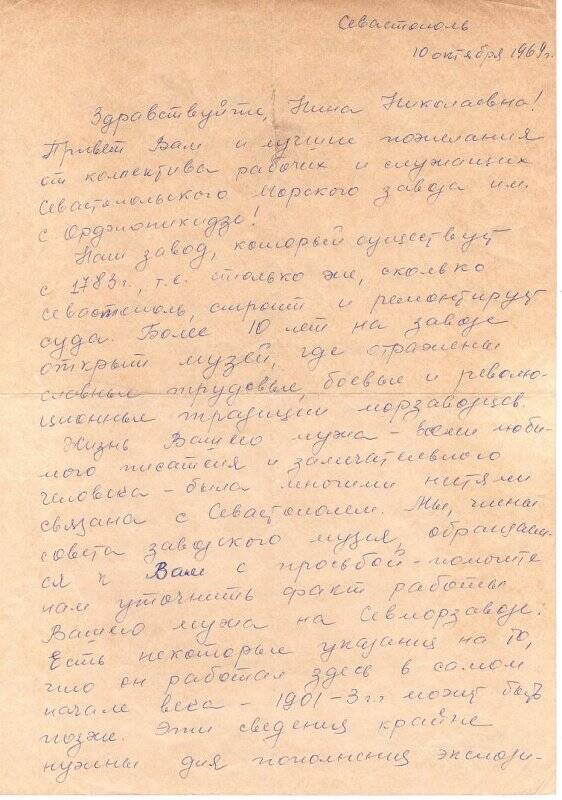 Севастополь
10 октября 1969г.
Здравствуйте, Нина Николаевна!
Привет Вам и лучшие пожелания
от коллектива рабочих и служащих
Севастопольского Морского завода им.
с Орджоникидзе!
Наш завод, который существует
с 1783г., т.е. столько же, сколько
Севастополь, строит и ремонтирует
суда. Более 10 лет на заводе
открыт музей, где отражены
славные трудовые, боевые и револю-
ционные традиции морзаводцев.
Жизнь Вашего мужа – всеми люби-
мого писателя и замечательного
человека – была многими нитями
связана с Севастополем. Мы, члены
совета заводского музея, обращаем-
ся к Вам с просьбой – помогите
нам уточнить факт работы
Вашего мужа на Севморзаводе.
Есть некоторые указания на то,
что он работал здесь в самом
начале века – 1901-3гг может быть
позже. Эти сведения крайне
нужны для пополнения экспози-